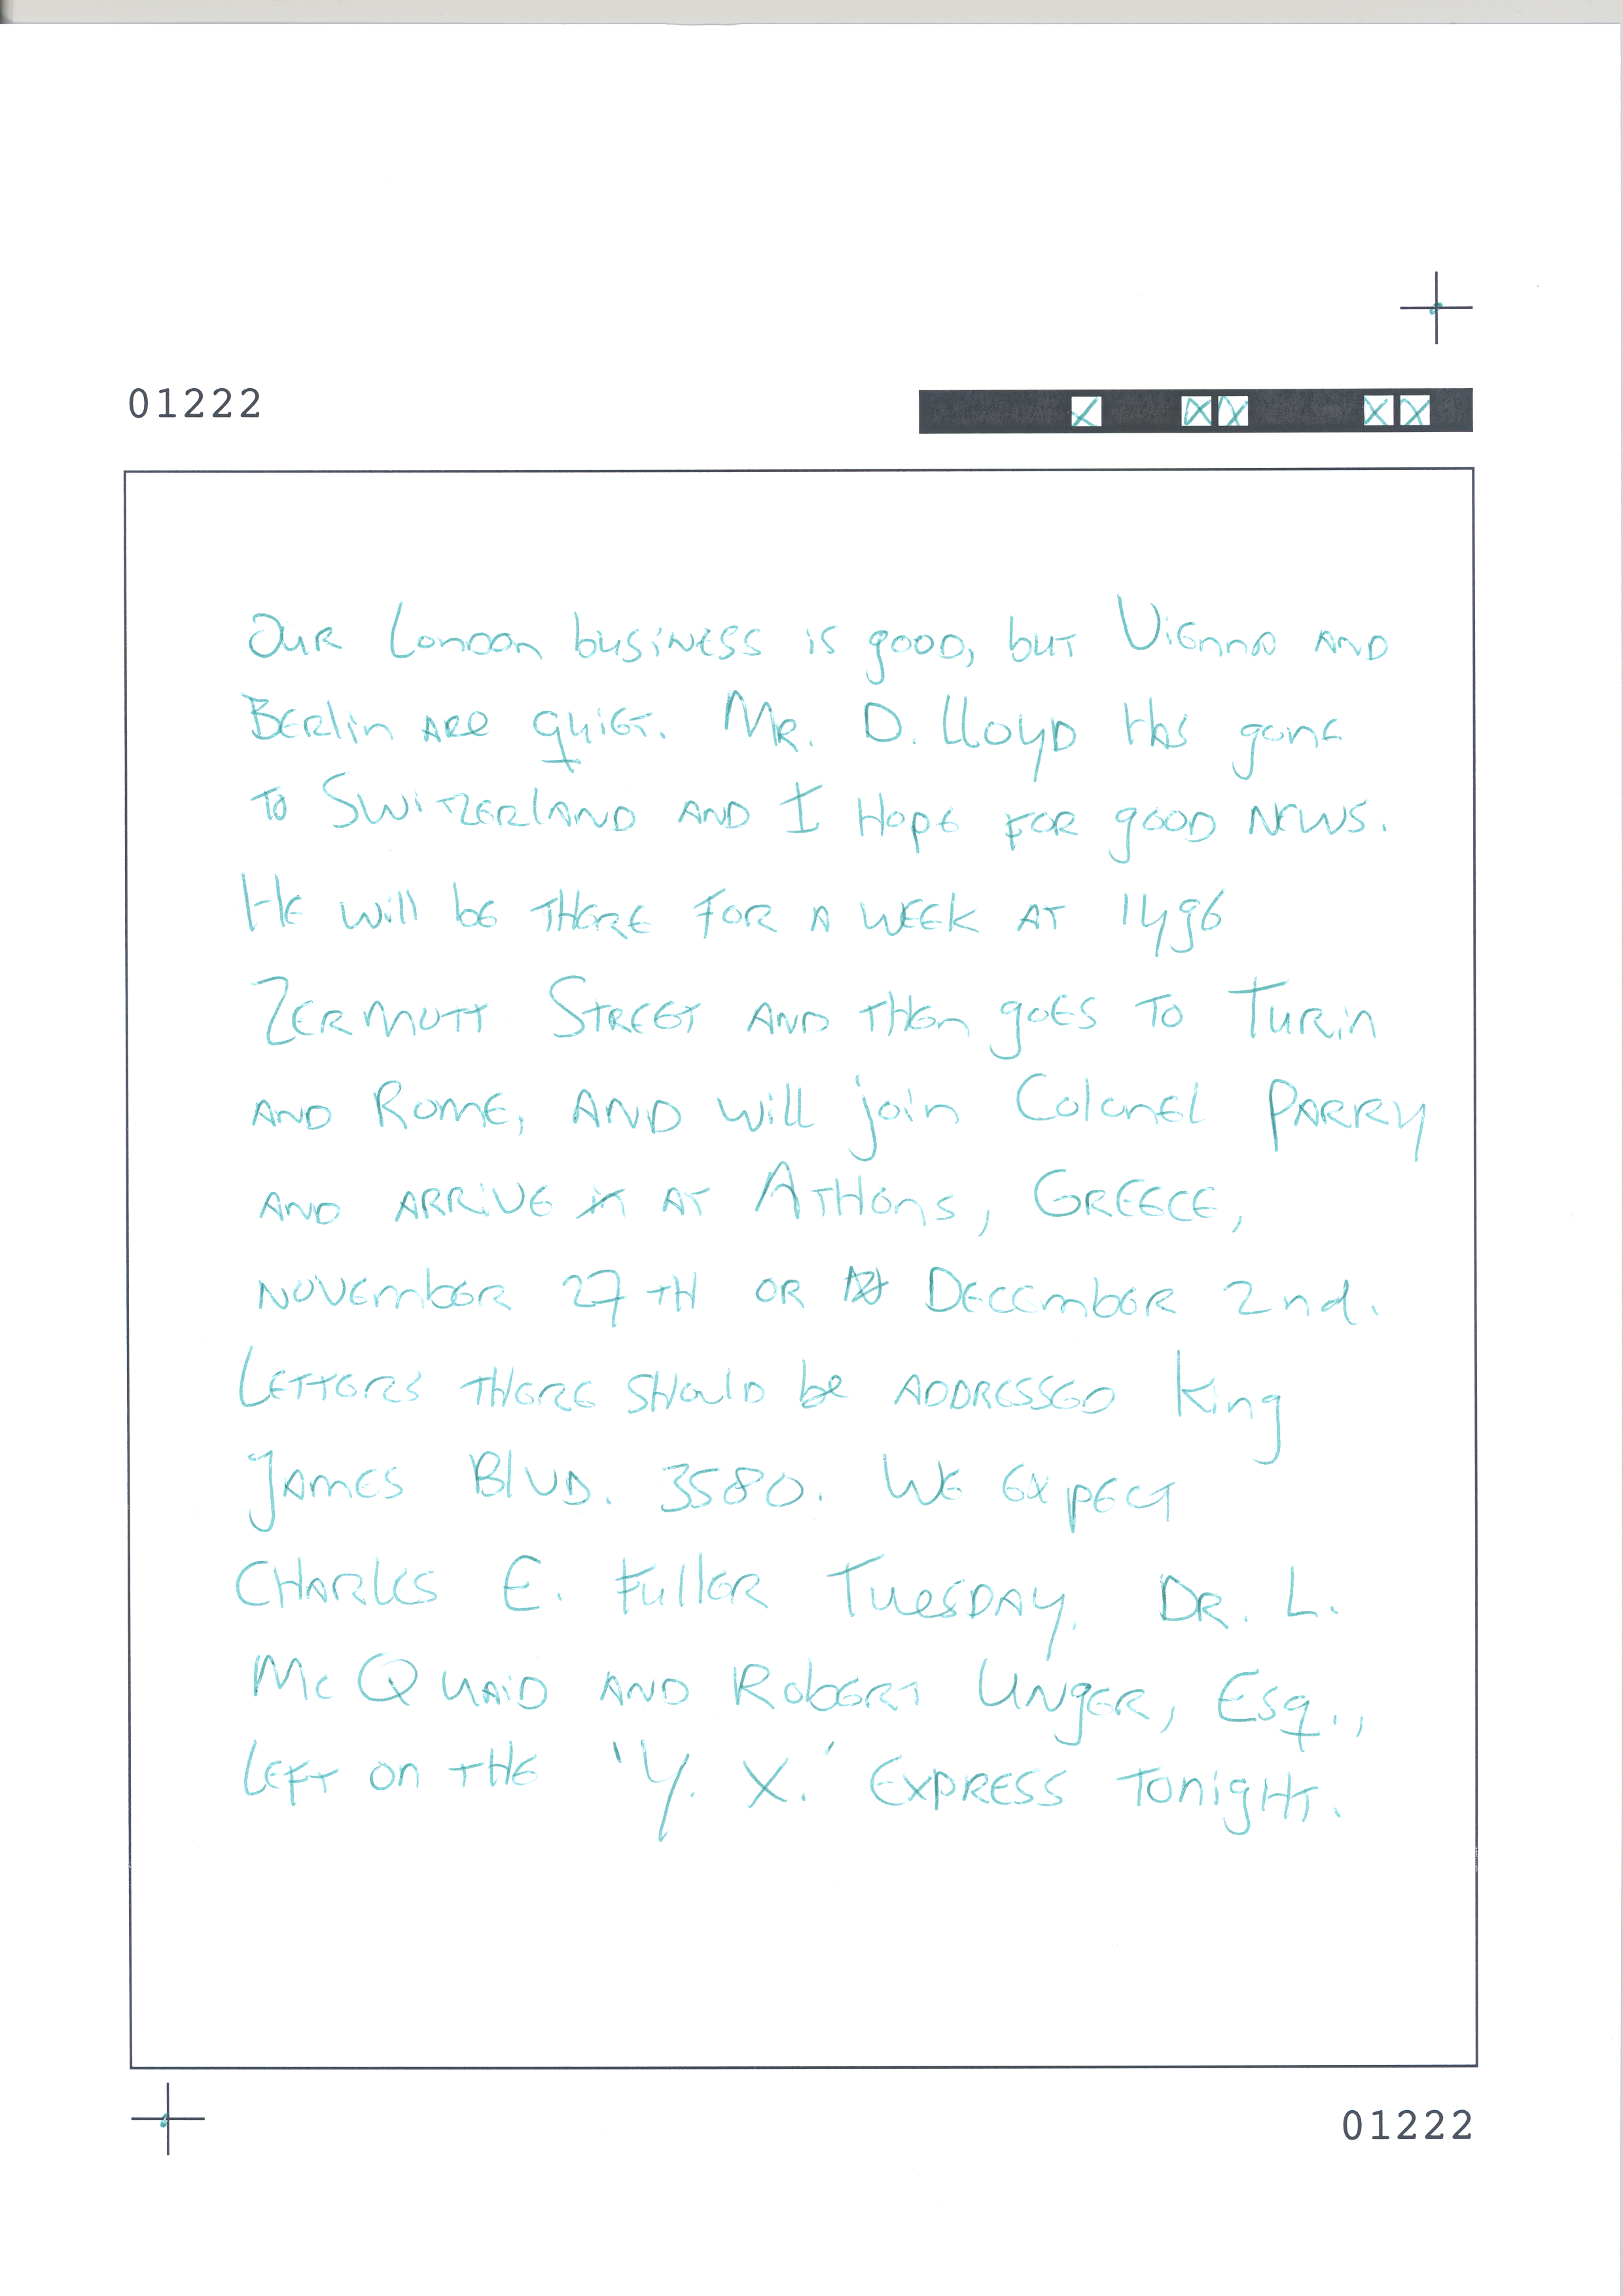 01222
Our London business is good, but Vienna and
Berlin are quiet. Mr. D. Lloyd has gone
to Switzerland and I hope for good news.
He will be there for a week at 1496
Zermott Street and then goes to Turin
and Rome, and will join Colonel Parry
and arrive at Athens, Greece,
November 27th or December 2nd.
Letters there should be addressed King
James Blvd. 3580. We expect
Charles E. Fuller Tuesday. Dr. L.
McQuaid and Robert Unger, Esq.,
left on the 'Y. X.' Express tonight.
01222